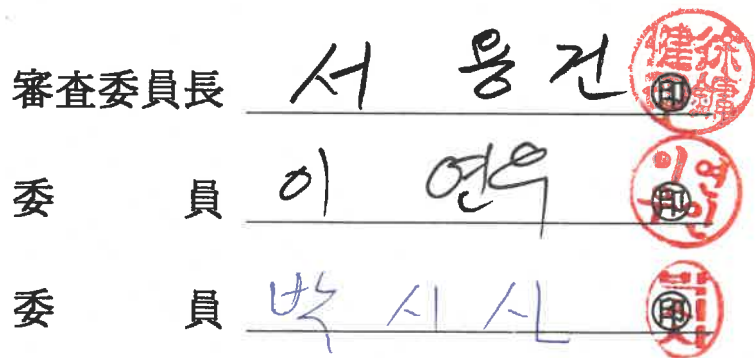 審査委員長 서 용 건 印
委 員 이 연우 印
委 員 박 시 사 印